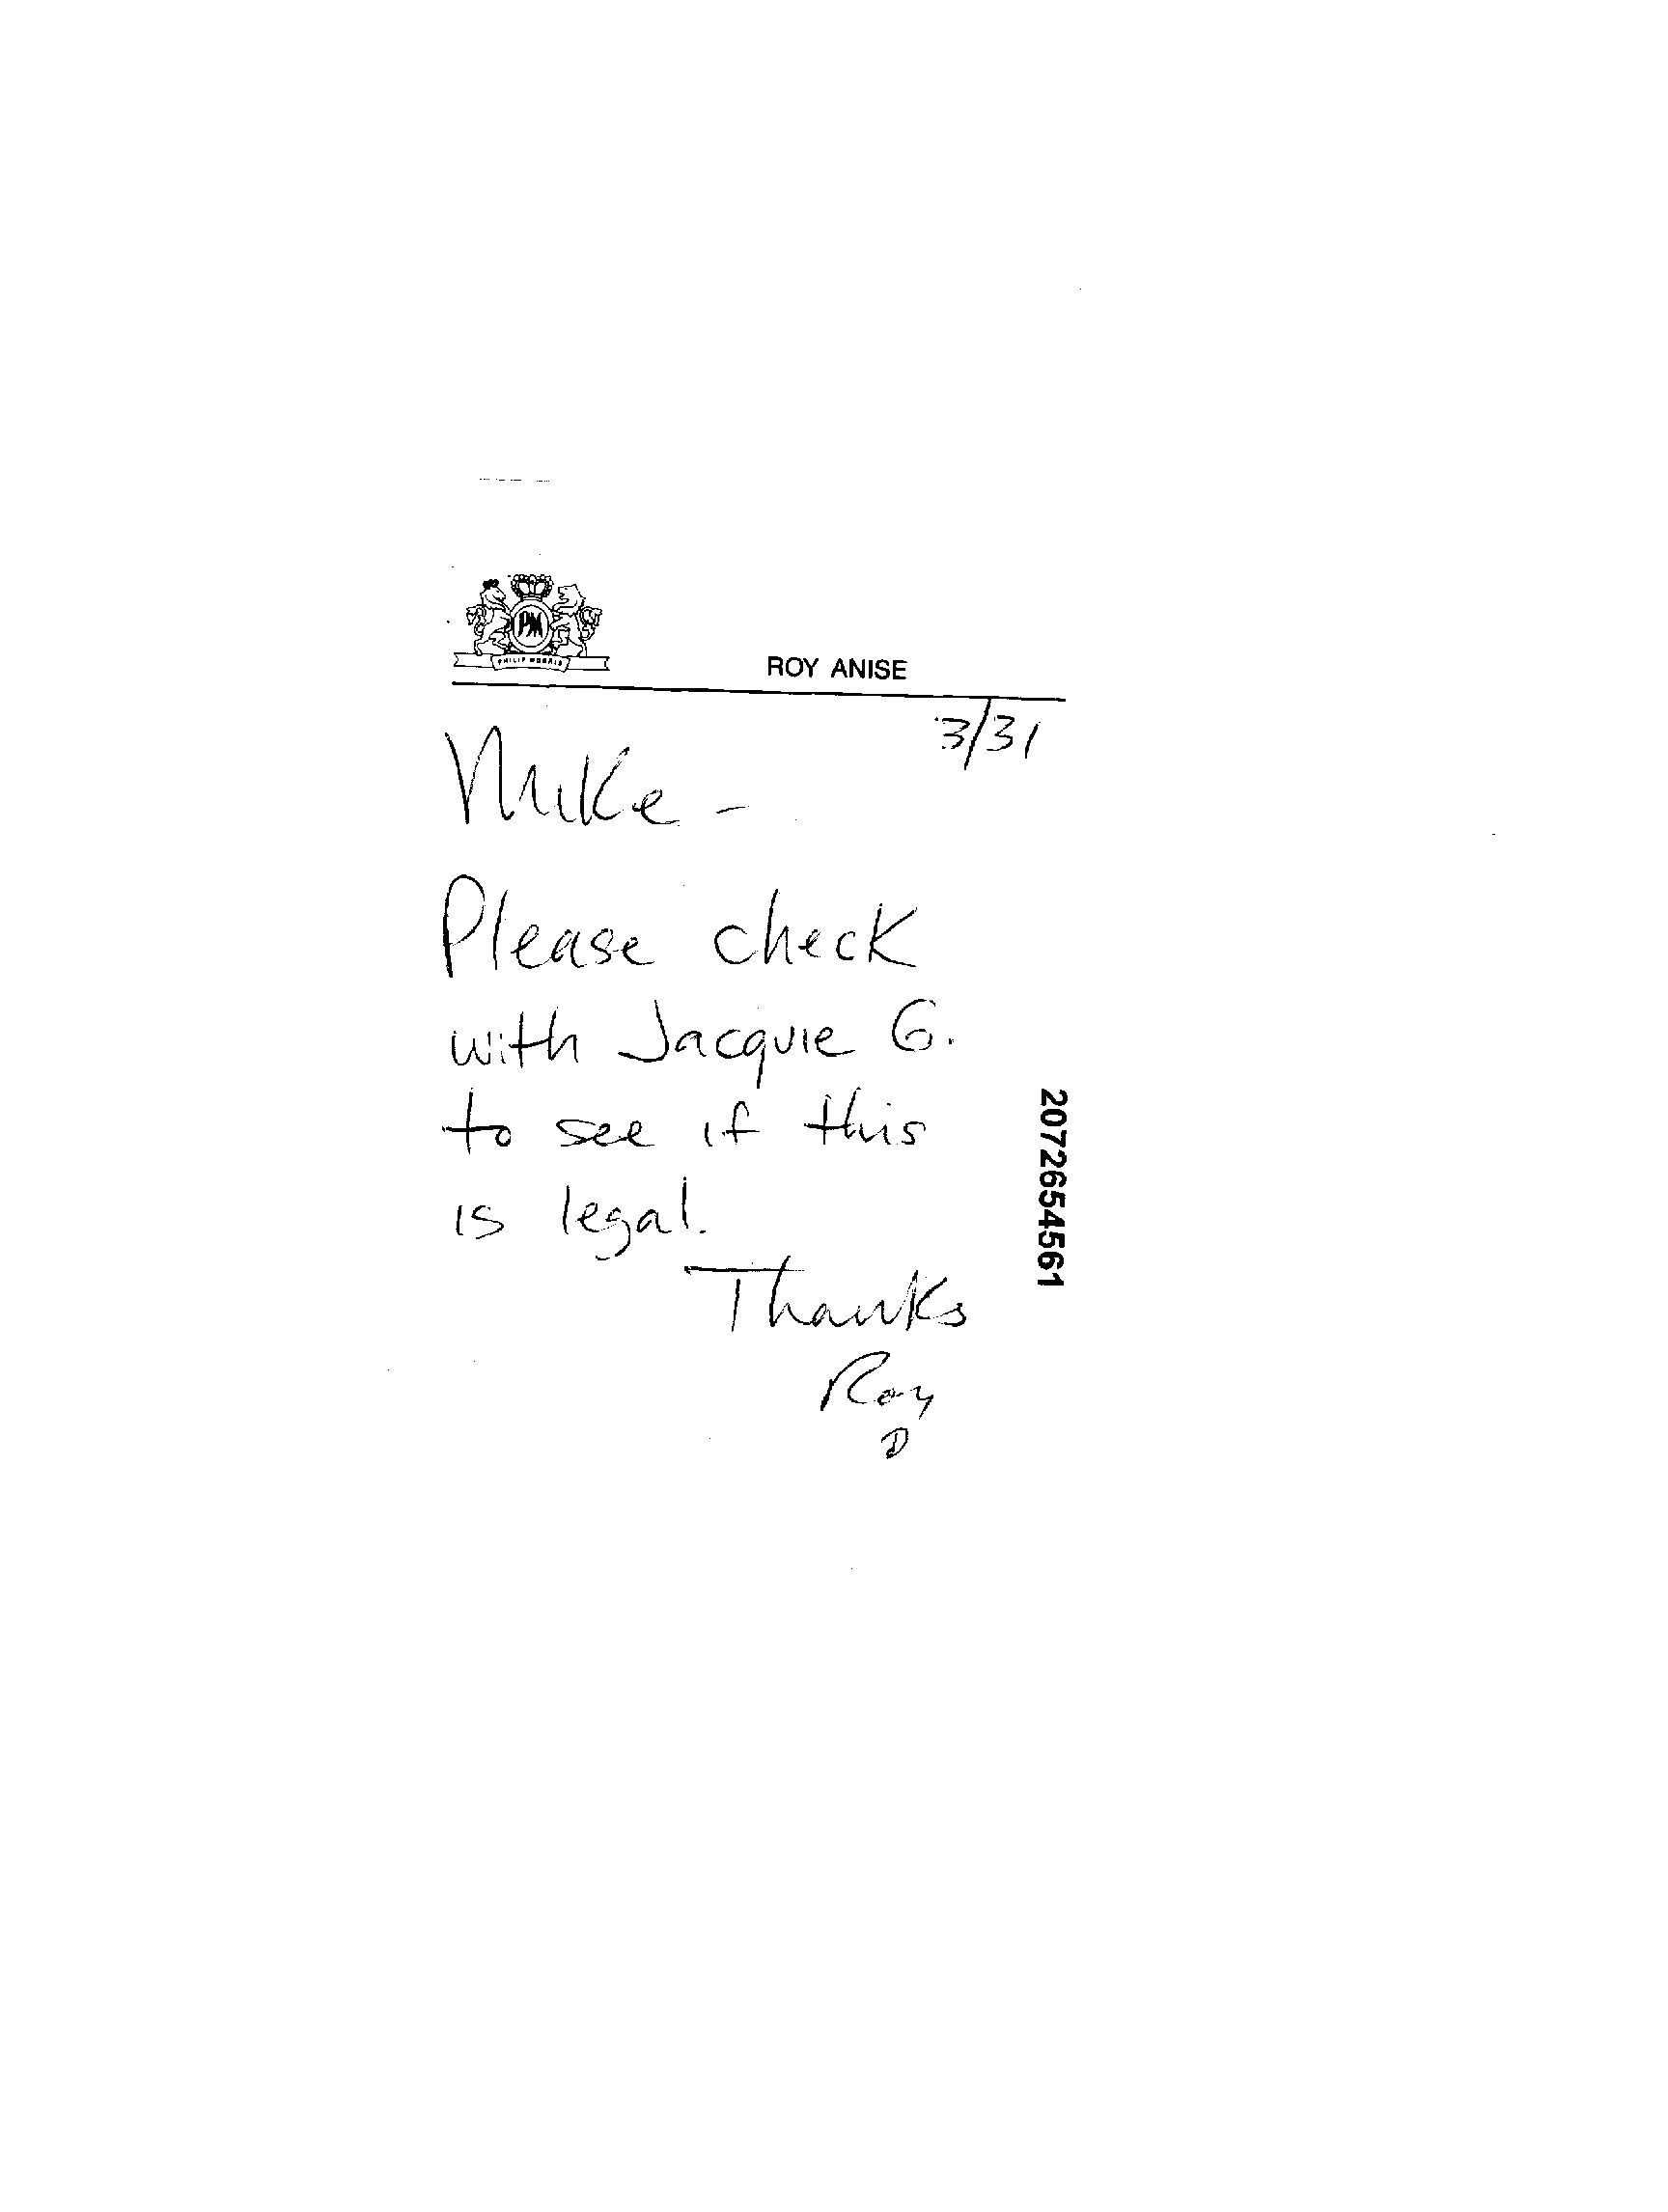 PM
PHILIP MORRIS
ROY ANISE
3/31
Mike -
Please check
with Jacquie G.
to see if this
is legal.
Thanks
Roy
2072654561